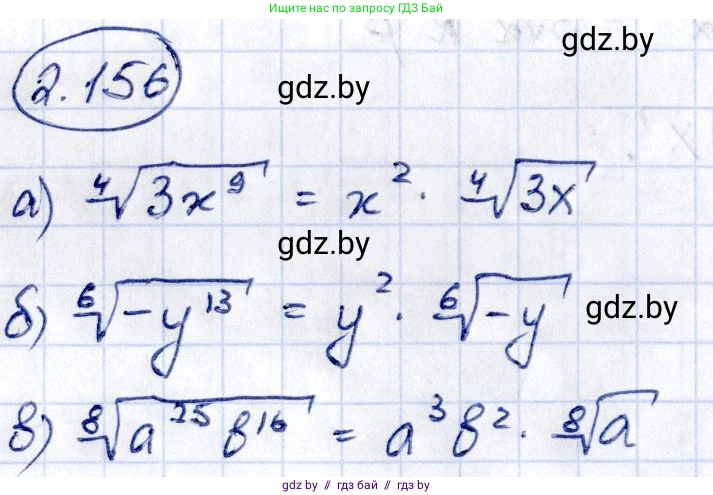 Ищите ответы на сайте по запросу ГДЗ Бай
gdz.by
2.156
gdz.by
а) ⁴√(3x⁹) = x² · ⁴√(3x)
gdz.by
б) ⁶√(-y¹³) = y² · ⁶√(-y)
gdz.by
в) ⁸√(a²⁵b¹⁶) = a³b² · ⁸√a
gdz.by // гдз бай // gdz.by